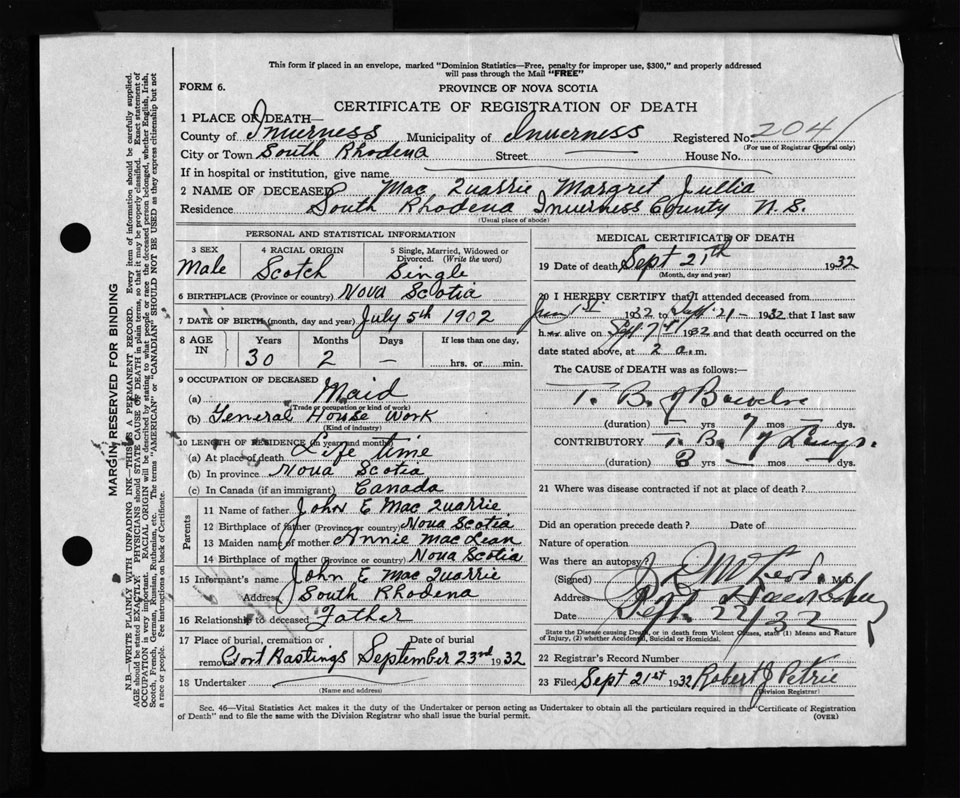 This form if placed in an envelope, marked "Dominion Statistics—Free, penalty for improper use, $300," and properly addressed
will pass through the Mail "FREE"
FORM 6.
PROVINCE OF NOVA SCOTIA
CERTIFICATE OF REGISTRATION OF DEATH
1 PLACE OF DEATH—
County of Inverness Municipality of Inverness Registered No. 204
(For use of Registrar General only)
City or Town South Rhodena Street House No.
If in hospital or institution, give name
2 NAME OF DECEASED Mac Quarrie Margret Jullia
Residence South Rhodena Inverness County N.S.
(Usual place of abode)
PERSONAL AND STATISTICAL INFORMATION
3 SEX 4 RACIAL ORIGIN 5 Single, Married, Widowed or
Divorced. (Write the word)
Male Scotch Single
6 BIRTHPLACE (Province or country) Nova Scotia
7 DATE OF BIRTH (month, day and year) July 5th 1902
8 AGE IN Years Months Days If less than one day,
30 2 — hrs. or min.
9 OCCUPATION OF DECEASED
(a) Maid
(Trade or occupation or kind of work)
(b) General House Work
(Kind of industry)
10 LENGTH OF RESIDENCE (in years and months)
(a) At place of death Life time
(b) In province Nova Scotia
(c) In Canada (if an immigrant) Canada
Parents
11 Name of father John E Mac Quarrie
12 Birthplace of father (Province or country) Nova Scotia
13 Maiden name of mother Annie Mac Lean
14 Birthplace of mother (Province or country) Nova Scotia
15 Informant's name John E Mac Quarrie
Address South Rhodena
16 Relationship to deceased Father
17 Place of burial, cremation or Date of burial
removal Port Hastings September 23rd 1932
18 Undertaker
(Name and address)
MEDICAL CERTIFICATE OF DEATH
19 Date of death Sept 21th 1932
(Month, day and year)
20 I HEREBY CERTIFY that I attended deceased from
1st 1932 to Sept 21 – 1932 that I last saw
h alive on Sept 7th 1932 and that death occurred on
date stated above, at 2 a.m.
The CAUSE of DEATH was as follows:—
T. B. of Bowels
(duration) — yrs 7 mos — dys.
CONTRIBUTORY T. B. of Lungs.
(duration) 3 yrs — mos — dys.
21 Where was disease contracted if not at place of death?
Did an operation precede death? Date of
Nature of operation
Was there an autopsy?
(Signed) McLeod M.D.
Address Port Hawkesbury
Date Sept. 22/32
State the Disease causing Death, or in death from Violent Causes, state (1) Means and Nature
of Injury, (2) whether Accidental, Suicidal or Homicidal.
22 Registrar's Record Number
23 Filed Sept 21st 1932 Robert J Petrie
(Division Registrar)
Sec. 46—Vital Statistics Act makes it the duty of the Undertaker or person acting as Undertaker to obtain all the particulars required in the "Certificate of Registration
of Death" and to file the same with the Division Registrar who shall issue the burial permit.
(OVER)
MARGIN RESERVED FOR BINDING
N.B.—WRITE PLAINLY WITH UNFADING INK—THIS IS A PERMANENT RECORD. Every item of information should be carefully supplied.
AGE should be stated EXACTLY. PHYSICIANS should STATE CAUSE OF DEATH in plain terms, so that it may be properly classified. Exact statement of
OCCUPATION is very important. RACIAL ORIGIN will be described by stating to what people or race the deceased person belonged, whether English, Irish,
Scotch, French, German, Russian, Ruthenian, etc. The terms "AMERICAN" or "CANADIAN" SHOULD NOT BE USED as they express citizenship but not
a race or people. Fee instructions on back of Certificate.